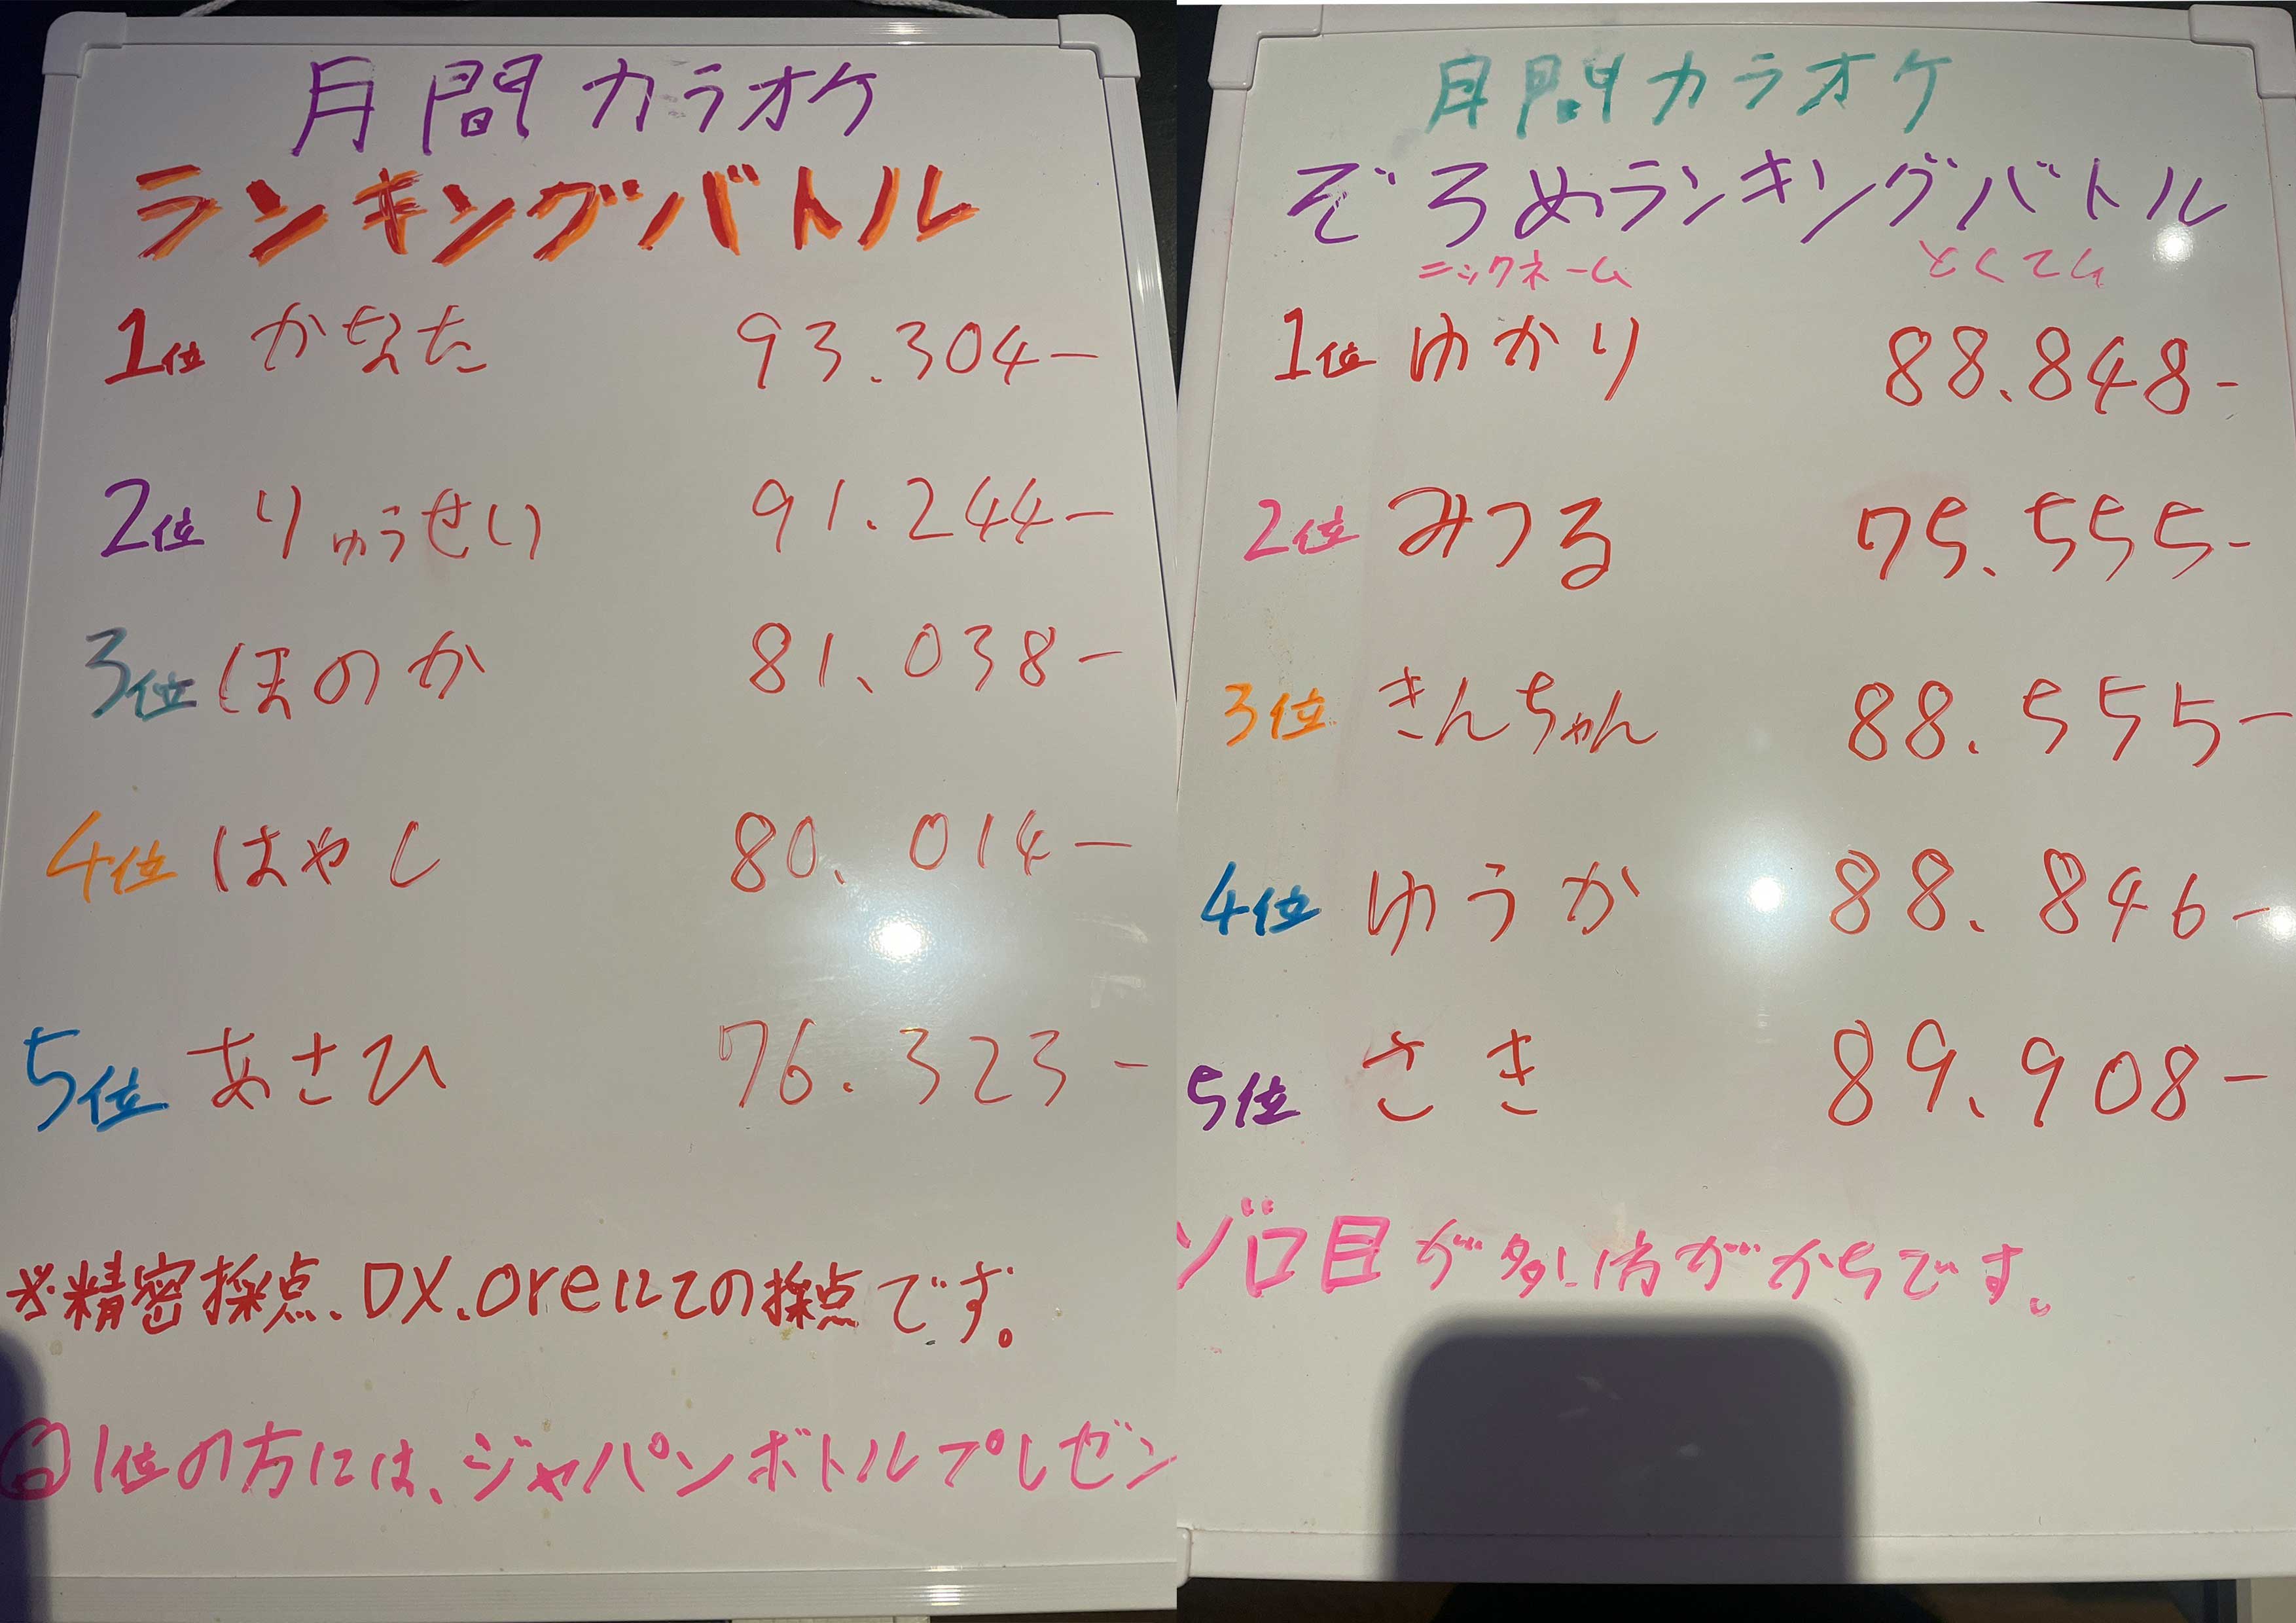 月間カラオケ
ランキングバトル
1位 かなた 93.304-
2位 りゅうせい 91.244-
3位 ほのか 81.038-
4位 はやし 80.014-
5位 あさひ 76.323-
※精密採点.DX.oreにての採点です。
1位の方には、ジャパンボトルプレゼン
月間カラオケ
ぞろめランキングバトル
ニックネーム とくてん
1位 ゆかり 88.848-
2位 みつる 75.555-
3位 きんちゃん 88.555-
4位 ゆうか 88.846-
5位 さき 89.908-
ゾロ目が多い方がかちです。